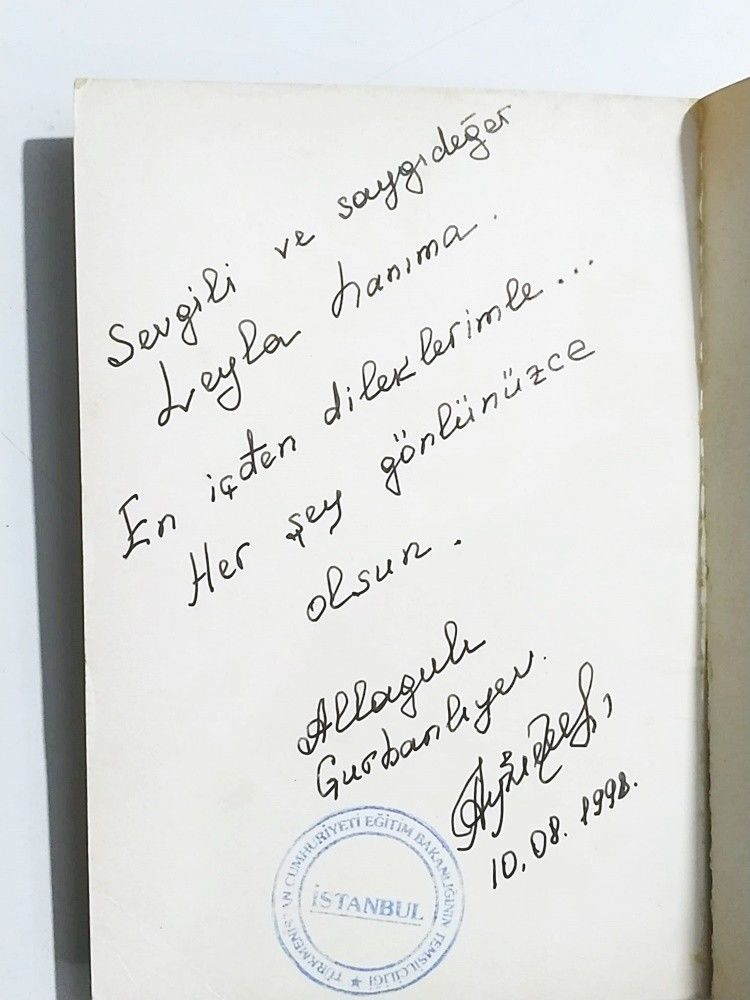 Sevgili ve saygıdeğer
Leyla hanıma.
En içten dileklerimle...
Her şey gönlünüzce
olsun.
Allagulı
Gurbanlıyev.
10.08.1998.
TÜRKMENİSTAN CUMHURİYETİ EĞİTİM BAKANLIĞININ TEMSİLCİLİĞİ
İSTANBUL